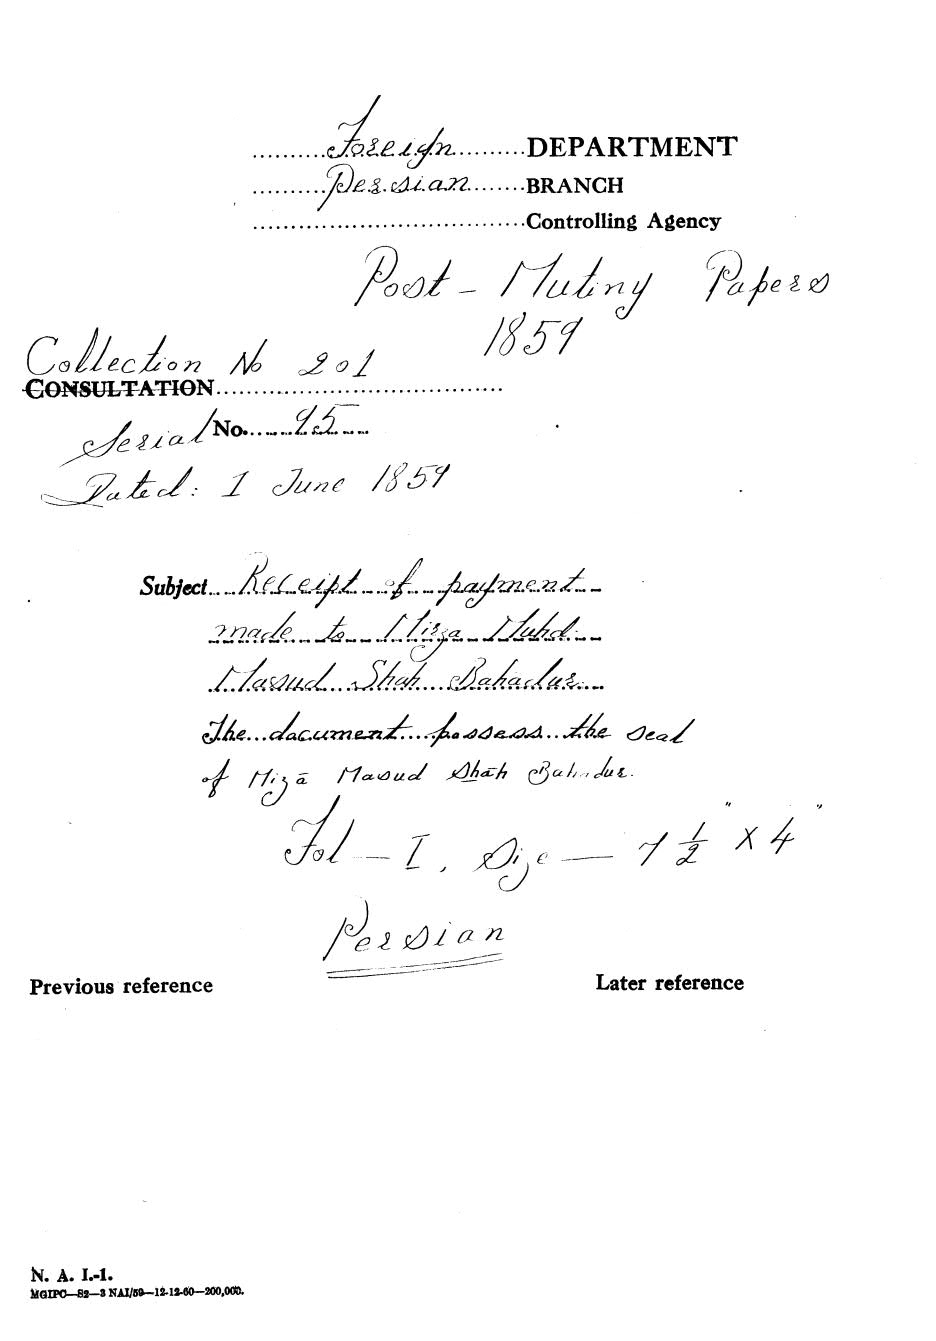 ..........Foreign..........DEPARTMENT
..........Persian........BRANCH
....................................Controlling Agency
Post - Mutiny Papers
1859
Collection No 201
CONSULTATION.......................................
Serial No. 95
Dated: 1 June 1859
Subject....Receipt of payment
made to Mirza Muhd.
Masud Shah Bahadur.
The document possess the seal
of Mizā Masud Shāh Bahadur.
Fol - I, Size — 7 1/2" X 4"
Persian
Previous reference Later reference
N. A. I.-1.
MGIPC—S2—3 NAI/59—12-12-60—200,000.